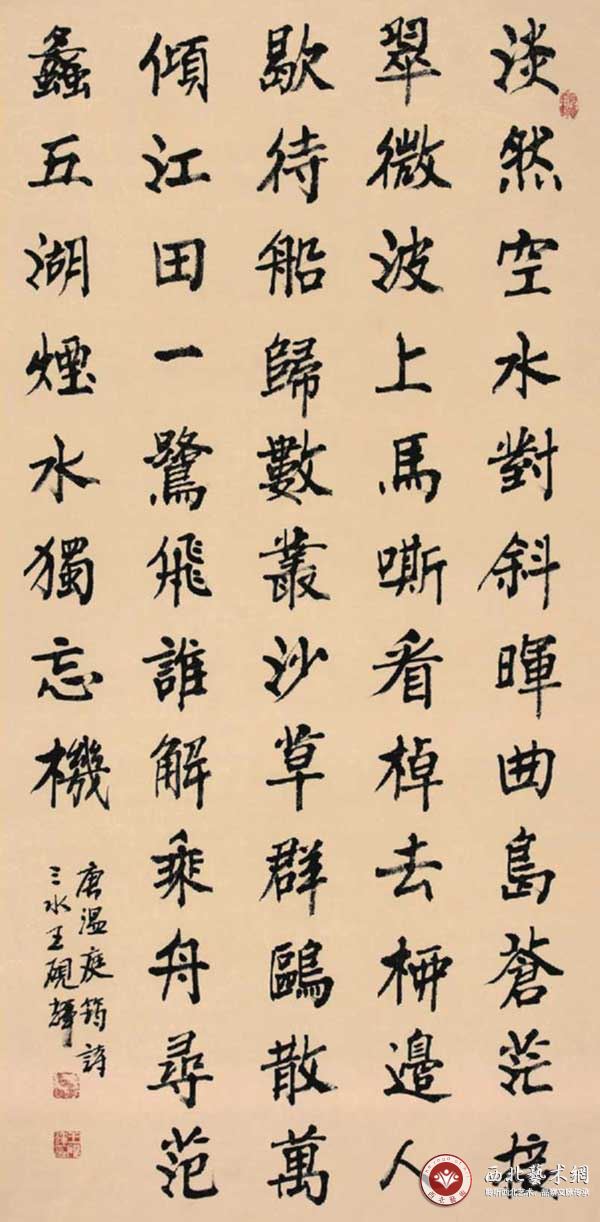 淡然空水對斜暉曲島蒼茫接
翠微波上馬嘶看棹去柳邊人
歇待船歸數叢沙草群鷗散萬
傾江田一鷺飛誰解乘舟尋范
蠡五湖煙水獨忘機
唐温庭筠詩
三水王硯輝
西北藝术網
聆听西北艺术，品味文脉传承